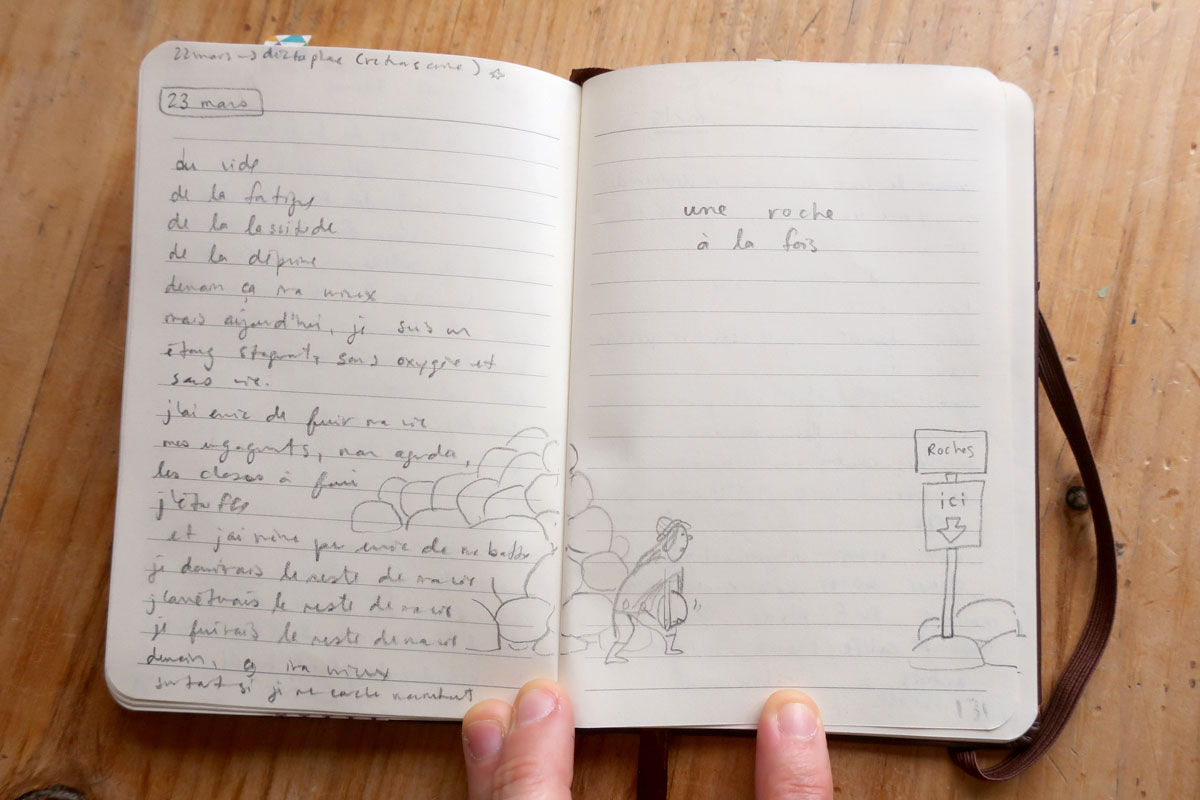 22 mars → dictaphone
23 mars
du vide
de la fatigue
de la lassitude
de la déprime
demain ça ira mieux
mais aujourd'hui, je suis un
étang stagnant, sans oxygène et
sans vie.
j'ai envie de fuir ma vie
mes engagements, mon agenda,
les choses à faire
j'étouffe
et j'ai même pas envie de me battre
je dormirais le reste de ma vie
j'arrêterais le reste de ma vie
je fuirais le reste de ma vie
demain, ça ira mieux
surtout si je me couche maintenant
une roche
à la fois
Roches
ici
131